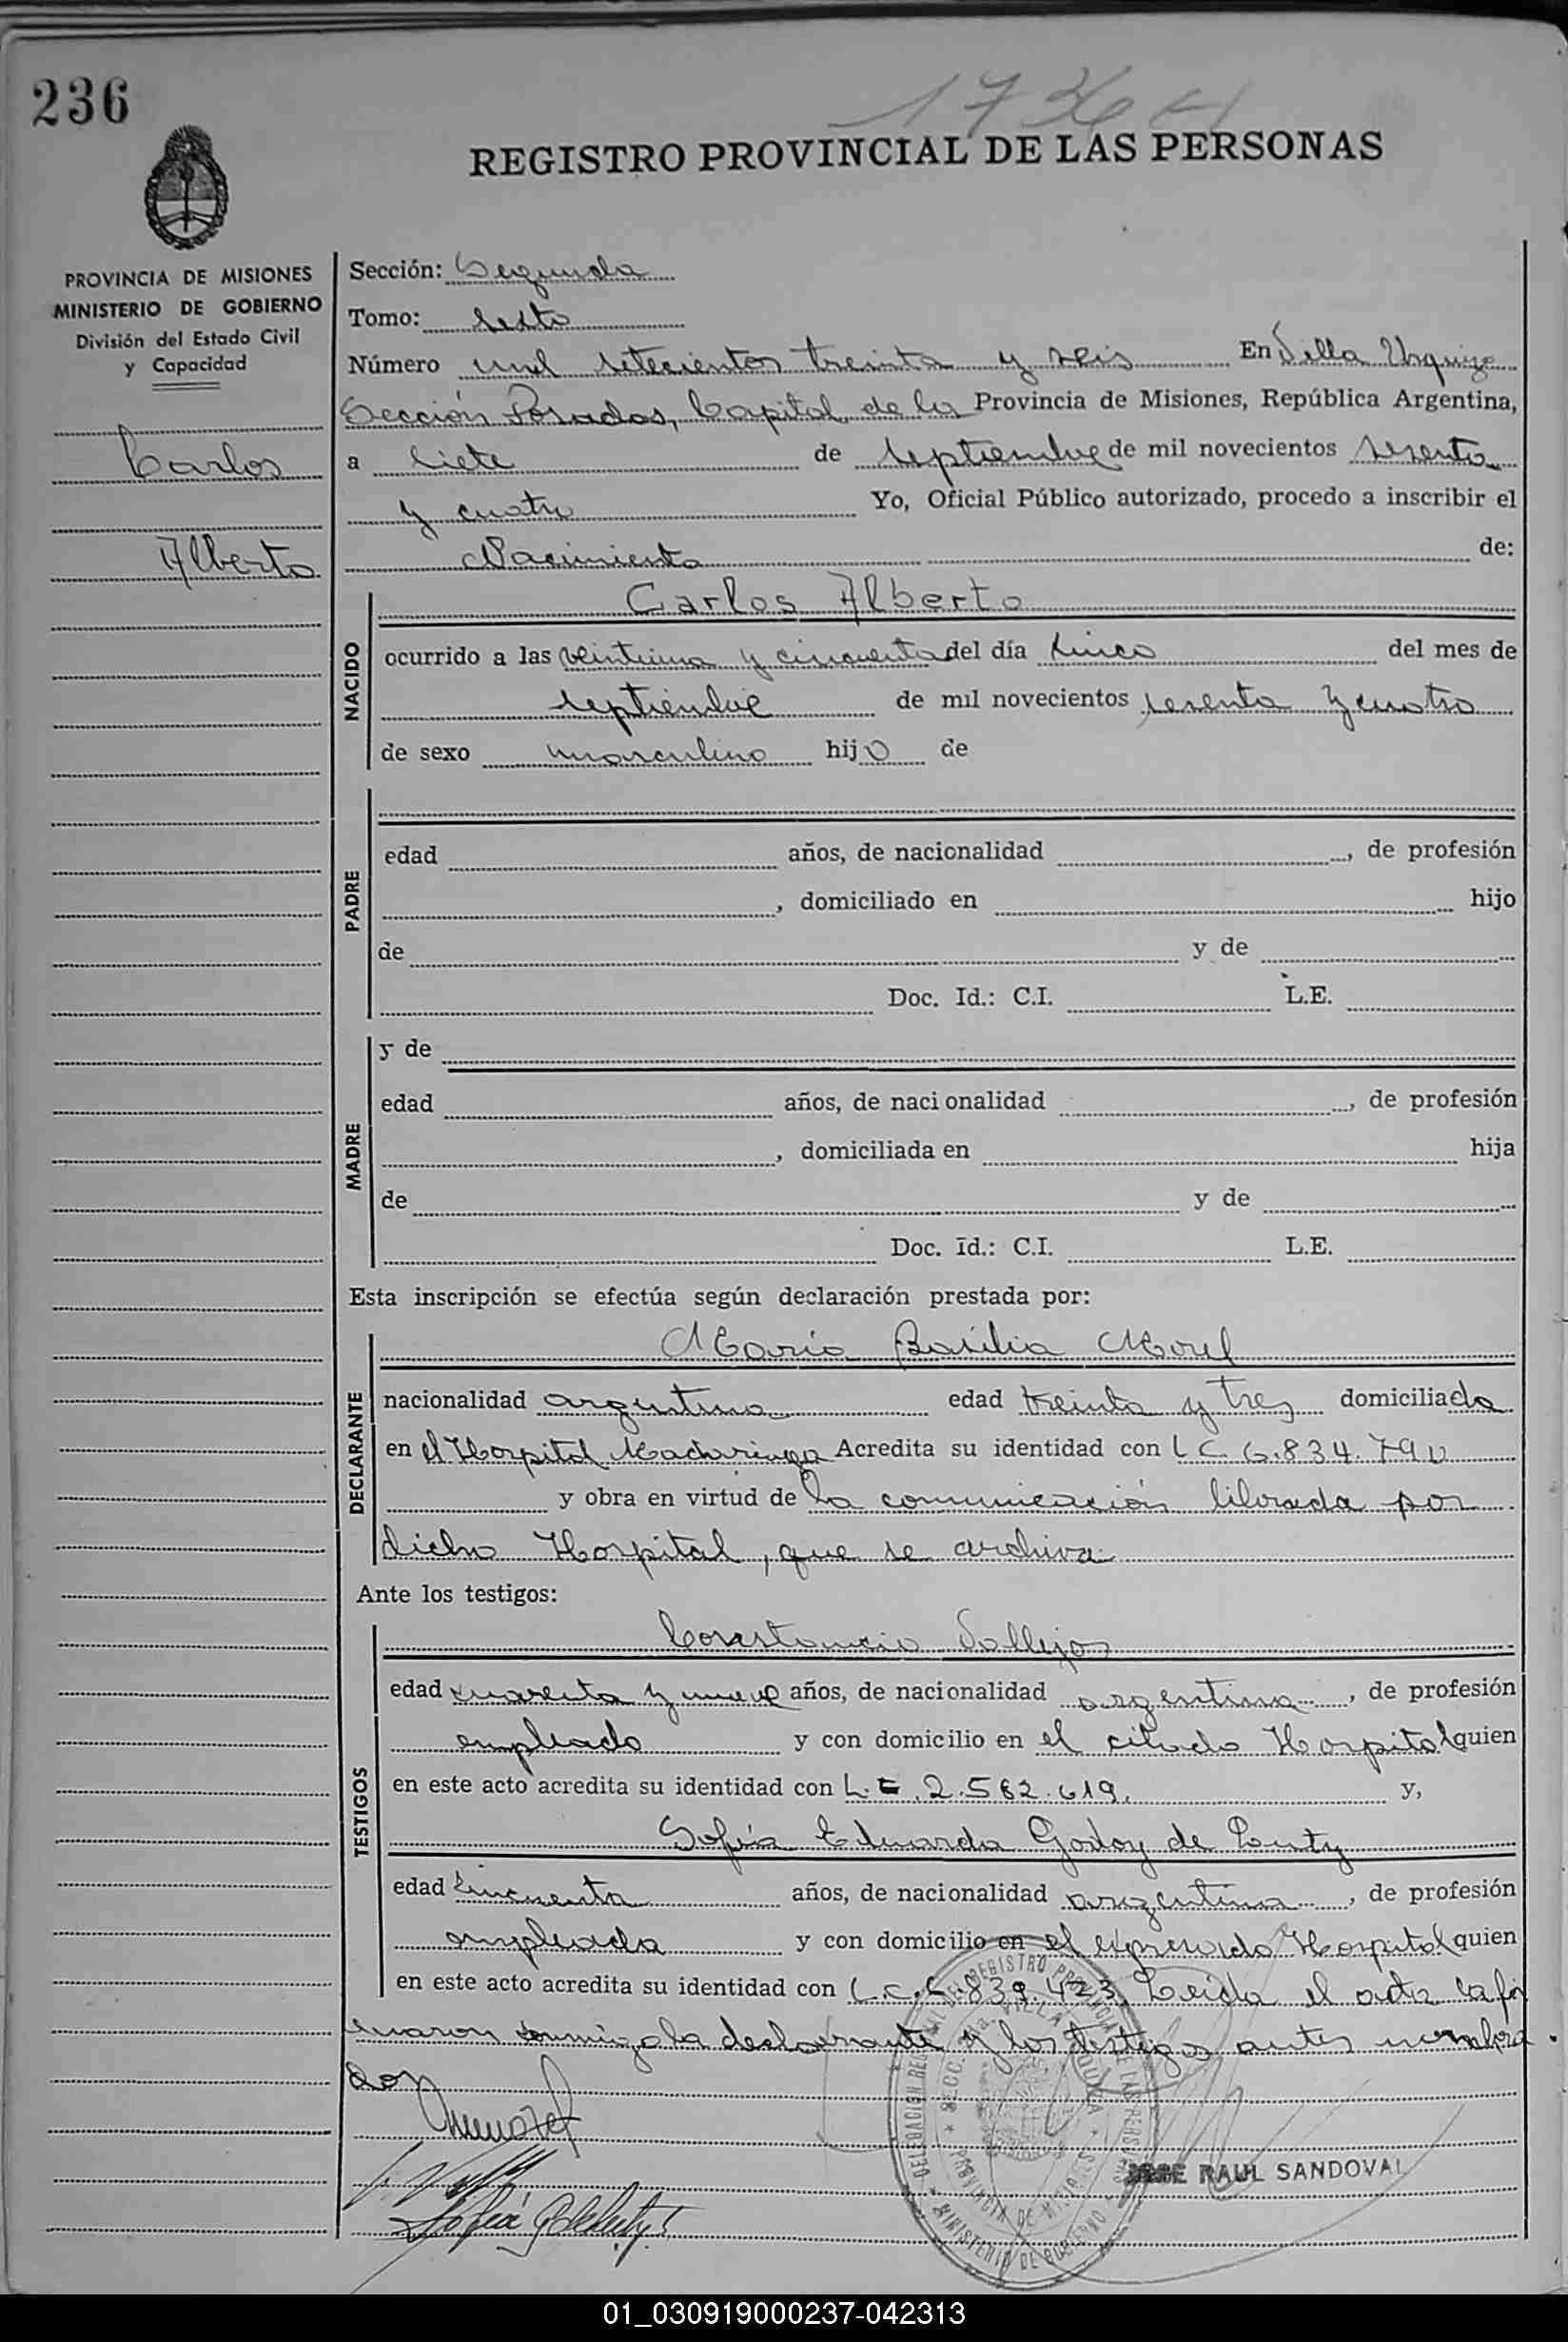 236
1736
REGISTRO PROVINCIAL DE LAS PERSONAS
PROVINCIA DE MISIONES
MINISTERIO DE GOBIERNO
División del Estado Civil
y Capacidad
Carlos
Alberto
Sección: Segunda
Tomo: sexto
Número mil setecientos treinta y seis En Villa Urquiza
Sección Posadas, Capital de la Provincia de Misiones, República Argentina,
a siete de septiembre de mil novecientos sesenta
y cuatro Yo, Oficial Público autorizado, procedo a inscribir el
Nacimiento de:
NACIDO
Carlos Alberto
ocurrido a las veintiuna y cincuenta del día cinco del mes de
septiembre de mil novecientos sesenta y cuatro
de sexo masculino hijo de
PADRE
edad años, de nacionalidad , de profesión
, domiciliado en hijo
de y de
Doc. Id.: C.I. L.E.
MADRE
y de
edad años, de nacionalidad , de profesión
, domiciliada en hija
de y de
Doc. Id.: C.I. L.E.
Esta inscripción se efectúa según declaración prestada por:
DECLARANTE
María Basilia Morel
nacionalidad argentina edad treinta y tres domiciliada
en el Hospital Madariaga Acredita su identidad con L C 6.834.790
y obra en virtud de la comunicación librada por
dicho Hospital, que se archiva
Ante los testigos:
TESTIGOS
Constancio Vallejos
edad cuarenta y nueve años, de nacionalidad argentina , de profesión
empleado y con domicilio en el citado Hospital quien
en este acto acredita su identidad con L.E. 2.582.619. y,
Sofía Eduarda Godoy de
edad cincuenta años, de nacionalidad argentina , de profesión
empleada y con domicilio en el expresado Hospital quien
en este acto acredita su identidad con L.C. 6.839.423. Leida el acta la fir
maron conmigo la declarante y los testigos antes nombra
dos
JOSE RAUL SANDOVAL
DELEGACION DEL REGISTRO PROVINCIAL DE LAS PERSONAS
MINISTERIO DE GOBIERNO
PROVINCIA DE MISIONES
01_030919000237-042313